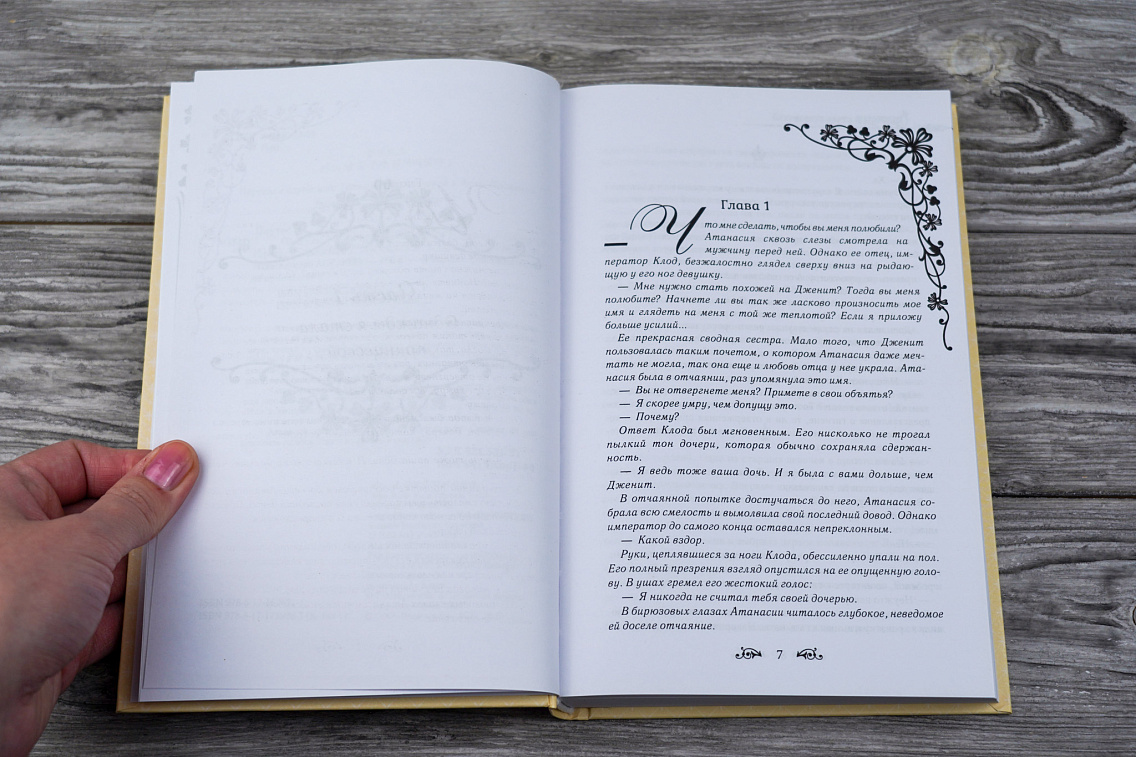 Глава 1
— Что мне сделать, чтобы вы меня полюбили?
Атанасия сквозь слезы смотрела на
мужчину перед ней. Однако ее отец, им-
ператор Клод, безжалостно глядел сверху вниз на рыдаю-
щую у его ног девушку.
— Мне нужно стать похожей на Дженит? Тогда вы меня
полюбите? Начнете ли вы так же ласково произносить мое
имя и глядеть на меня с той же теплотой? Если я приложу
больше усилий...
Ее прекрасная сводная сестра. Мало того, что Дженит
пользовалась таким почетом, о котором Атанасия даже меч-
тать не могла, так она еще и любовь отца у нее украла. Ата-
насия была в отчаянии, раз упомянула это имя.
— Вы не отвергнете меня? Примете в свои объятья?
— Я скорее умру, чем допущу это.
— Почему?
Ответ Клода был мгновенным. Его нисколько не трогал
пылкий тон дочери, которая обычно сохраняла сдержан-
ность.
— Я ведь тоже ваша дочь. И я была с вами дольше, чем
Дженит.
В отчаянной попытке достучаться до него, Атанасия со-
брала всю смелость и вымолвила свой последний довод. Однако
император до самого конца оставался непреклонным.
— Какой вздор.
Руки, цеплявшиеся за ноги Клода, обессиленно упали на пол.
Его полный презрения взгляд опустился на ее опущенную голо-
ву. В ушах гремел его жестокий голос:
— Я никогда не считал тебя своей дочерью.
В бирюзовых глазах Атанасии читалось глубокое, неведомое
ей доселе отчаяние.
7